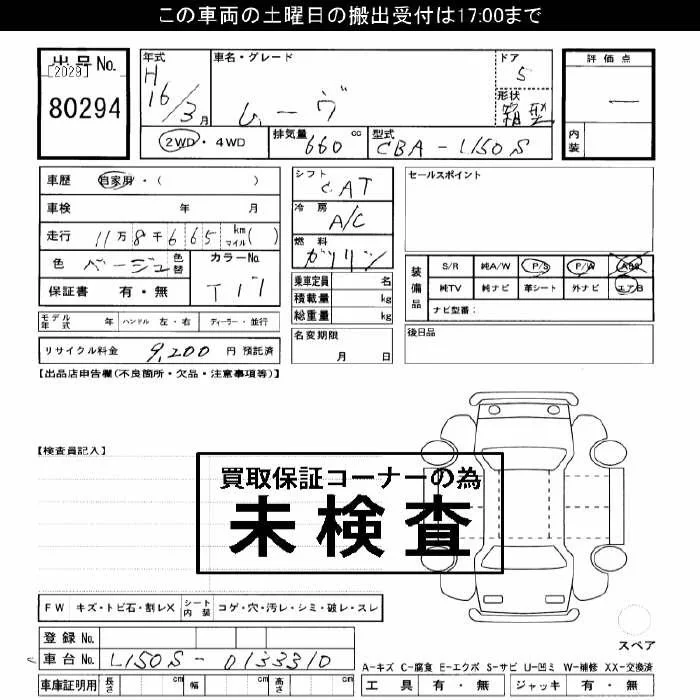 この車両の土曜日の搬出受付は17:00まで
出品No.
[2029]
80294
年式
H
16/3月
車名・グレード
ムーヴ
ドア
5
形状
箱型
評価点
―
内装
2WD・4WD
排気量
660 cc
型式
CBA-L150S
車歴 自家用・( )
車検 年 月
走行 11万8千665 km マイル( )
色 ベージュ 色替
カラーNo.
T17
保証書 有・無
モデル年式 年 ハンドル 左・右 ディーラー・並行
リサイクル料金 9,200 円 預託済
シフト
CAT
冷房
A/C
燃料
ガソリン
乗車定員 名
積載量 kg
総重量 kg
名変期限
月 日
セールスポイント
装備品
S/R 純A/W P/S P/W ABS
純TV 純ナビ 革シート 外ナビ エアB
ナビ型番:
後日品
【出品店申告欄(不良箇所・欠品・注意事項等)】
【検査員記入】
買取保証コーナーの為
未検査
FW キズ・トビ石・割レX シート内装 コゲ・穴・汚レ・シミ・破レ・スレ
登録No.
車台No. L150S-0133310
車庫証明用 長さ cm 幅 cm 高さ cm
スペア
A-キズ C-腐食 E-エクボ S-サビ U-凹ミ W-補修 XX-交換済
工具 有・無 ジャッキ 有・無